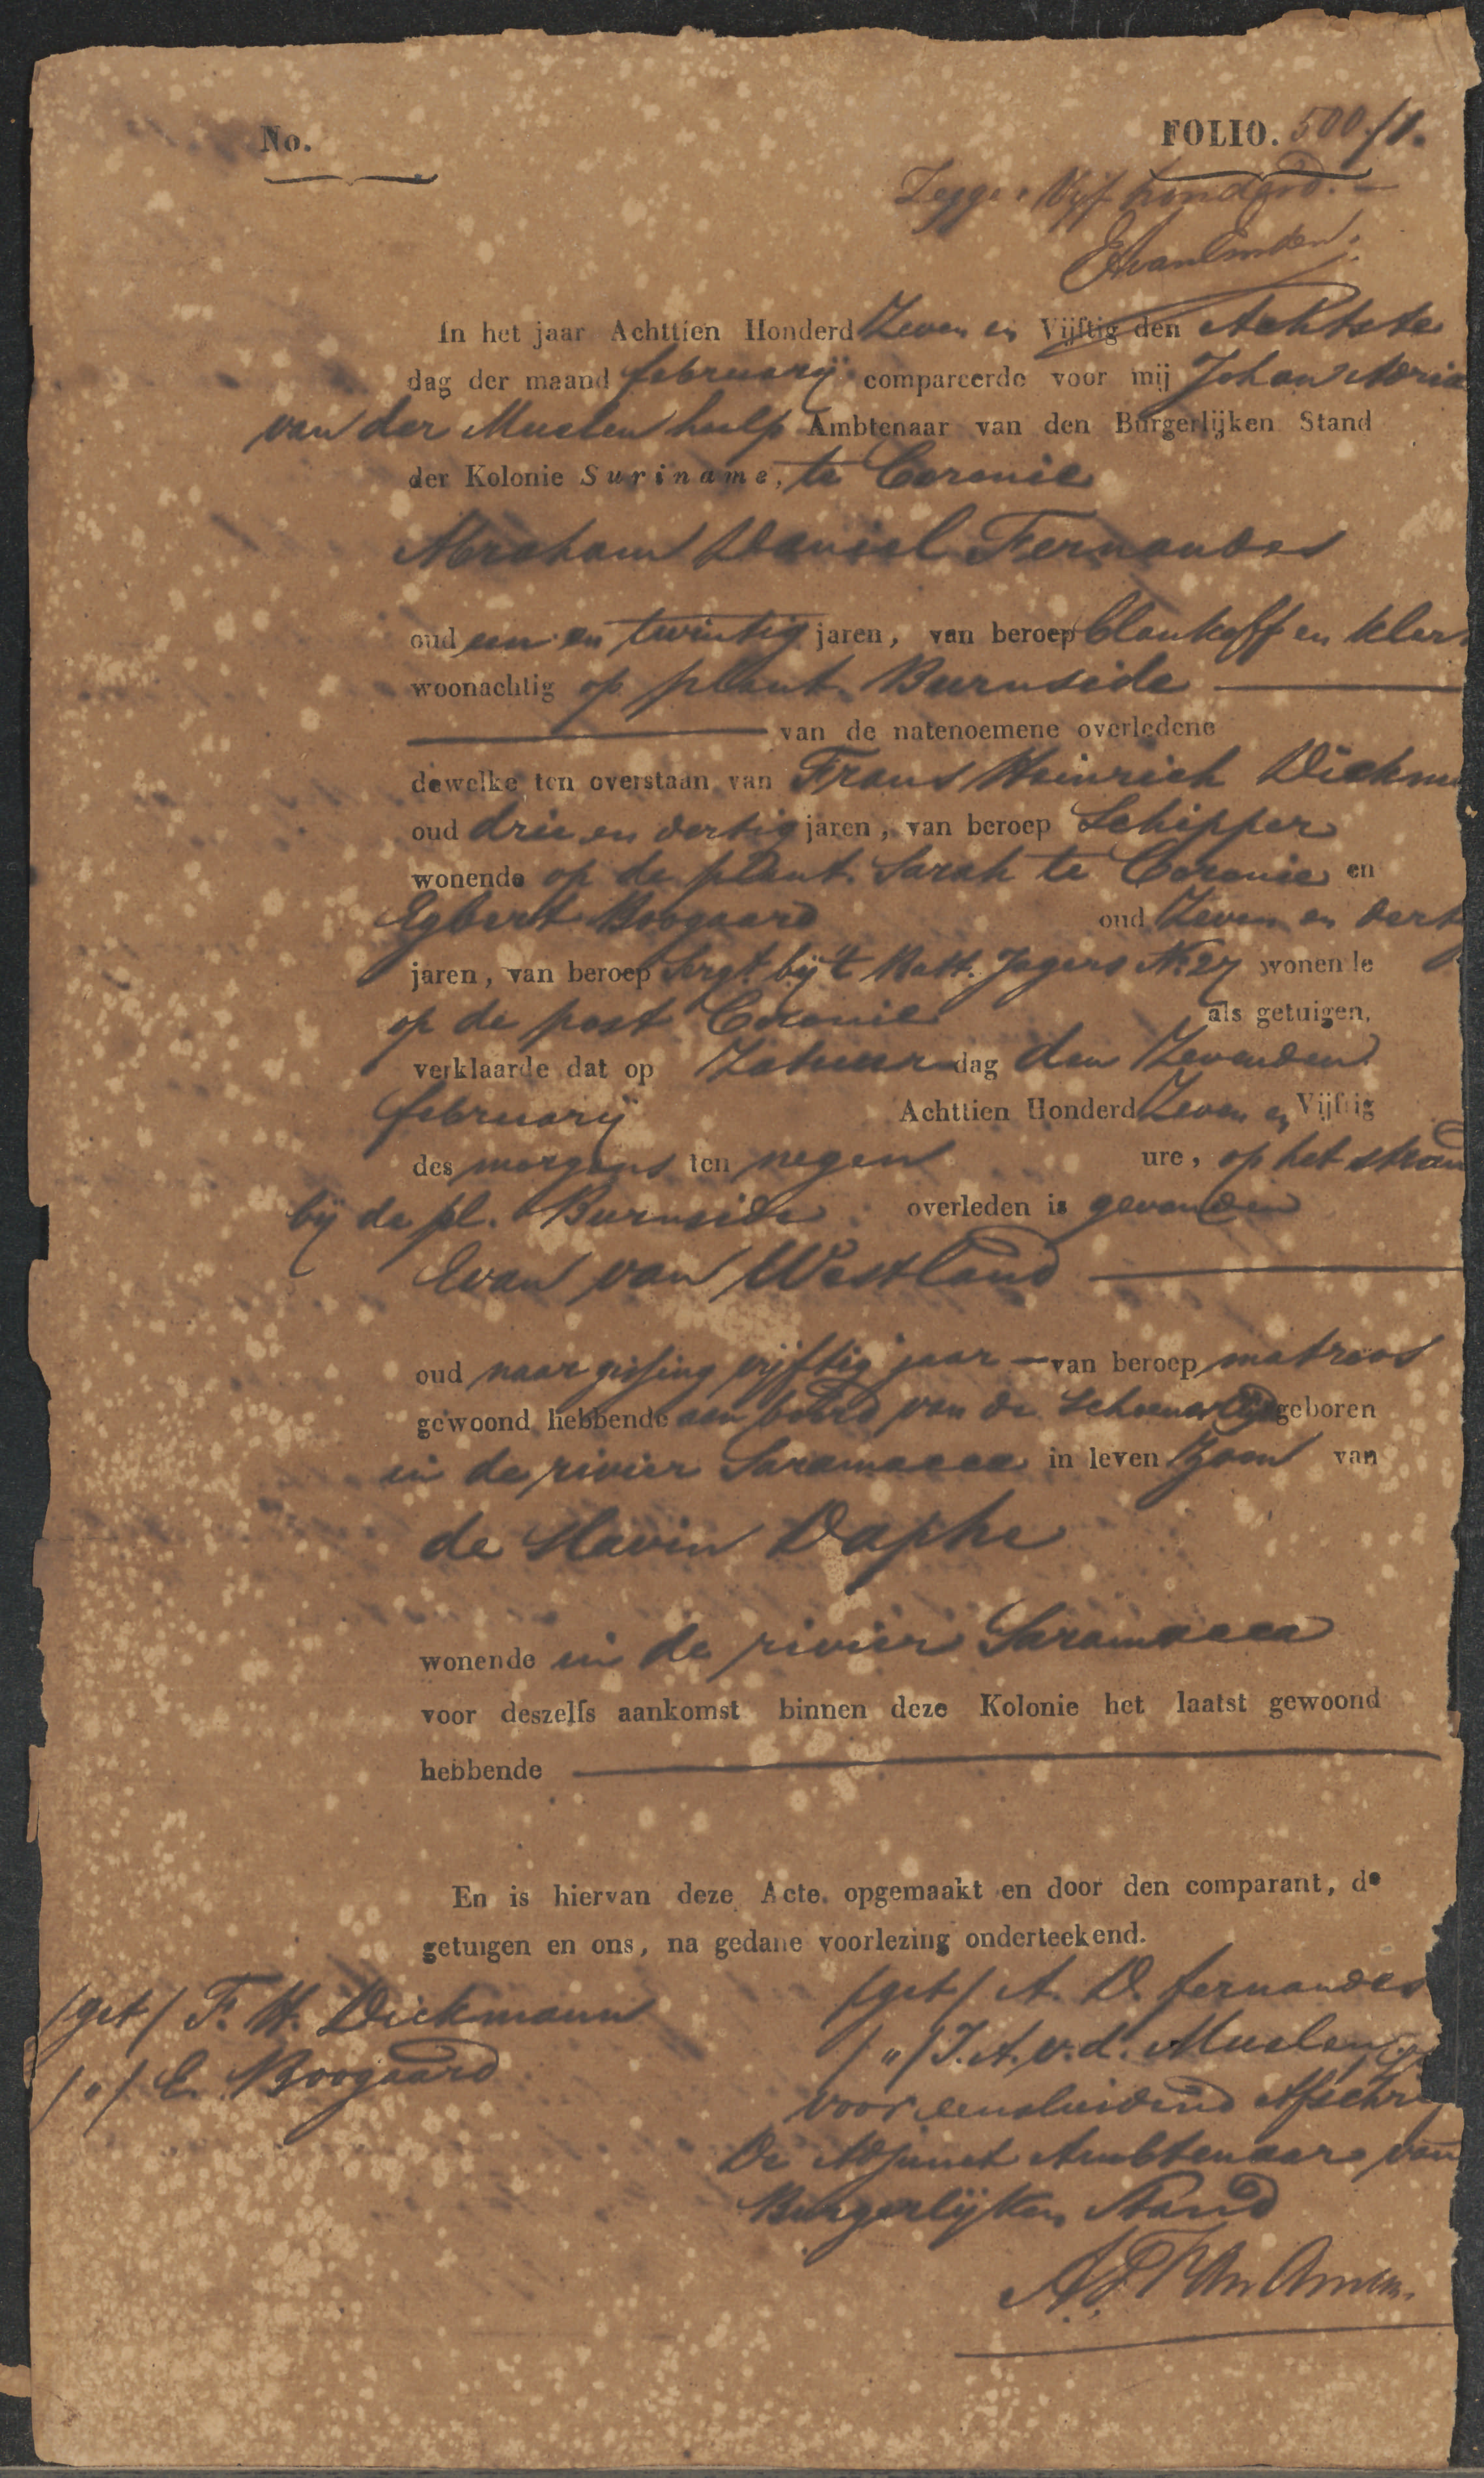 No.
FOLIO. 500/1.
Zegge Vijf honderd.
In het jaar Achttien Honderd Zeven en Vijftig den Achtste
dag der maand february compareerde voor mij Johan Adria
van der Muelen hulp Ambtenaar van den Burgerlijken Stand
der Kolonie Suriname, te Coronie
Abraham Daniel Fernandes
oud een en twintig jaren, van beroep blankoff en kler
woonachtig op plant. Burnside
van de natenoemene overledene
dewelke ten overstaan van Frans Heinrich Dickm
oud drie en dertig jaren, van beroep Schipper
wonende op de plant. Sarah te Coronie en
Egbert Boogaard oud Zeven en dert
jaren, van beroep Sergt. bij 't Batt. Jagers No 27 wonende
op de post Coronie als getuigen,
verklaarde dat op Zatur dag den Zevenden
february Achttien Honderd Zeven en Vijftig
des morgens ten negen ure, op het stran
bij de pl. Burnside overleden is gevonden
Evan van Westland
oud naar gissing vijftig jaar van beroep matroos
gewoond hebbende aan boord van de Schoener geboren
in de rivier Saramacca in leven Zoon van
de slavin Daphe
wonende in de rivier Saramacca
voor deszelfs aankomst binnen deze Kolonie het laatst gewoond
hebbende
En is hiervan deze Acte opgemaakt en door den comparant, de
getuigen en ons, na gedane voorlezing onderteekend.
/get/ F. H. Dickmann
/"/ E. Boogaard
/get/ A. D. fernandes
/"/ J. A. v. d. Muelen
voor eensluidend Afschr
De Adjunct Ambtenaar van
Burgerlijken Stand